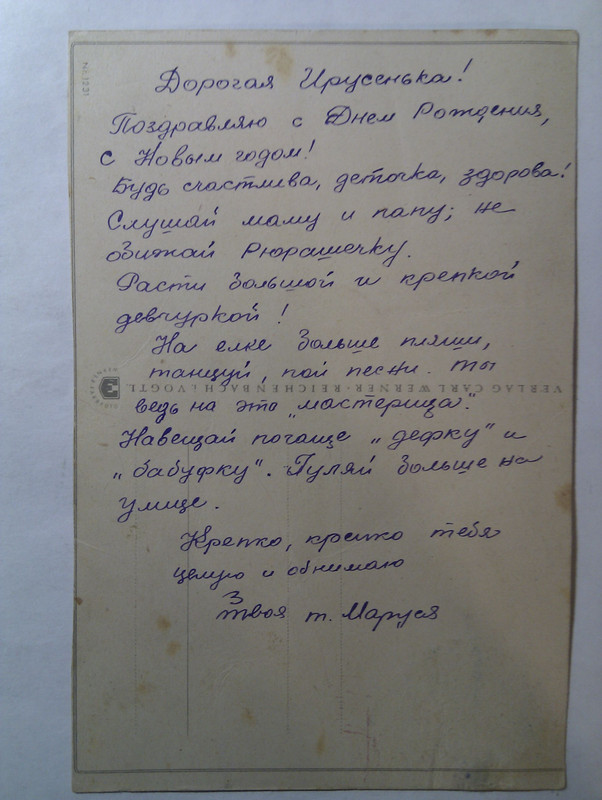 Дорогая Ирусенька!
Поздравляю с Днем Рождения,
с Новым годом!
Будь счастлива, деточка, здорова!
Слушай маму и папу; не
обижай Рюрашечку.
Расти большой и крепкой
девчуркой!
На елке больше пляши,
танцуй, пой песни. Ты
ведь на это „мастерица".
Навещай почаще „дефку" и
„бабуфку". Гуляй больше на
улице.
Крепко, крепко тебя
целую и обнимаю
Твоя т. Маруся
VERLAG CARL WERNER · REICHENBACH i. VOGTL.